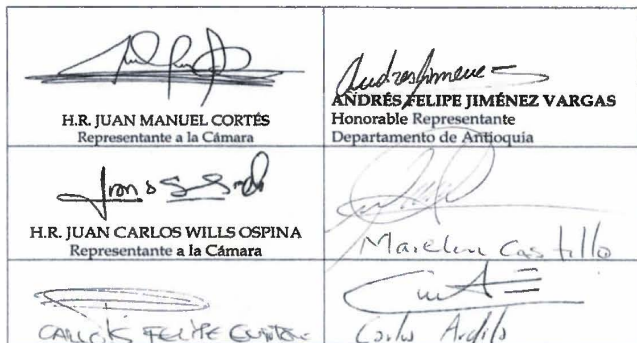 H.R. JUAN MANUEL CORTÉS
Representante a la Cámara
Andres Jimenez
ANDRÉS FELIPE JIMÉNEZ VARGAS
Honorable Representante
Departamento de Antioquia
H.R. JUAN CARLOS WILLS OSPINA
Representante a la Cámara
Marelen Castillo
CARLOS FELIPE
Carlos Ardila